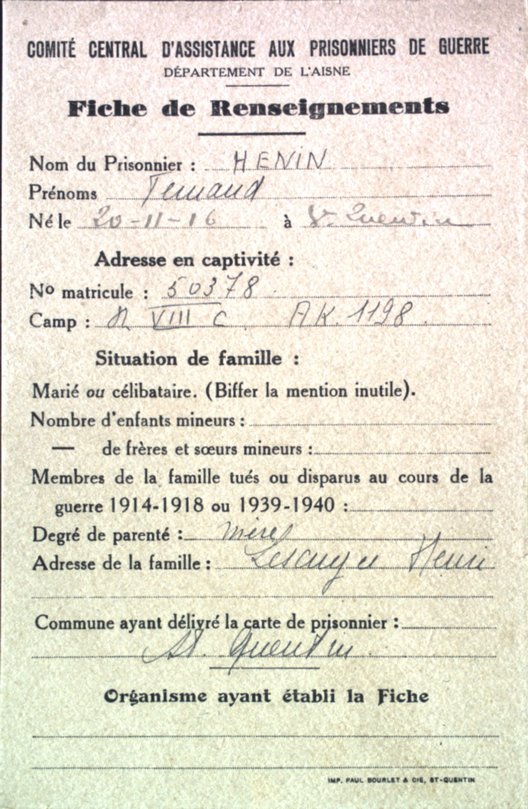 COMITÉ CENTRAL D'ASSISTANCE AUX PRISONNIERS DE GUERRE
DÉPARTEMENT DE L'AISNE
Fiche de Renseignements
Nom du Prisonnier : HENIN
Prénoms Fernand
Né le 20-11-16 à St Quentin
Adresse en captivité :
No matricule : 50378
Camp : VIII C AK. 1198
Situation de famille :
Marié ou célibataire. (Biffer la mention inutile).
Nombre d'enfants mineurs :
— de frères et sœurs mineurs :
Membres de la famille tués ou disparus au cours de la
guerre 1914-1918 ou 1939-1940 :
Degré de parenté : mère
Adresse de la famille : Henri
Commune ayant délivré la carte de prisonnier :
St. Quentin
Organisme ayant établi la Fiche
IMP. PAUL BOURLET & CIE, ST-QUENTIN